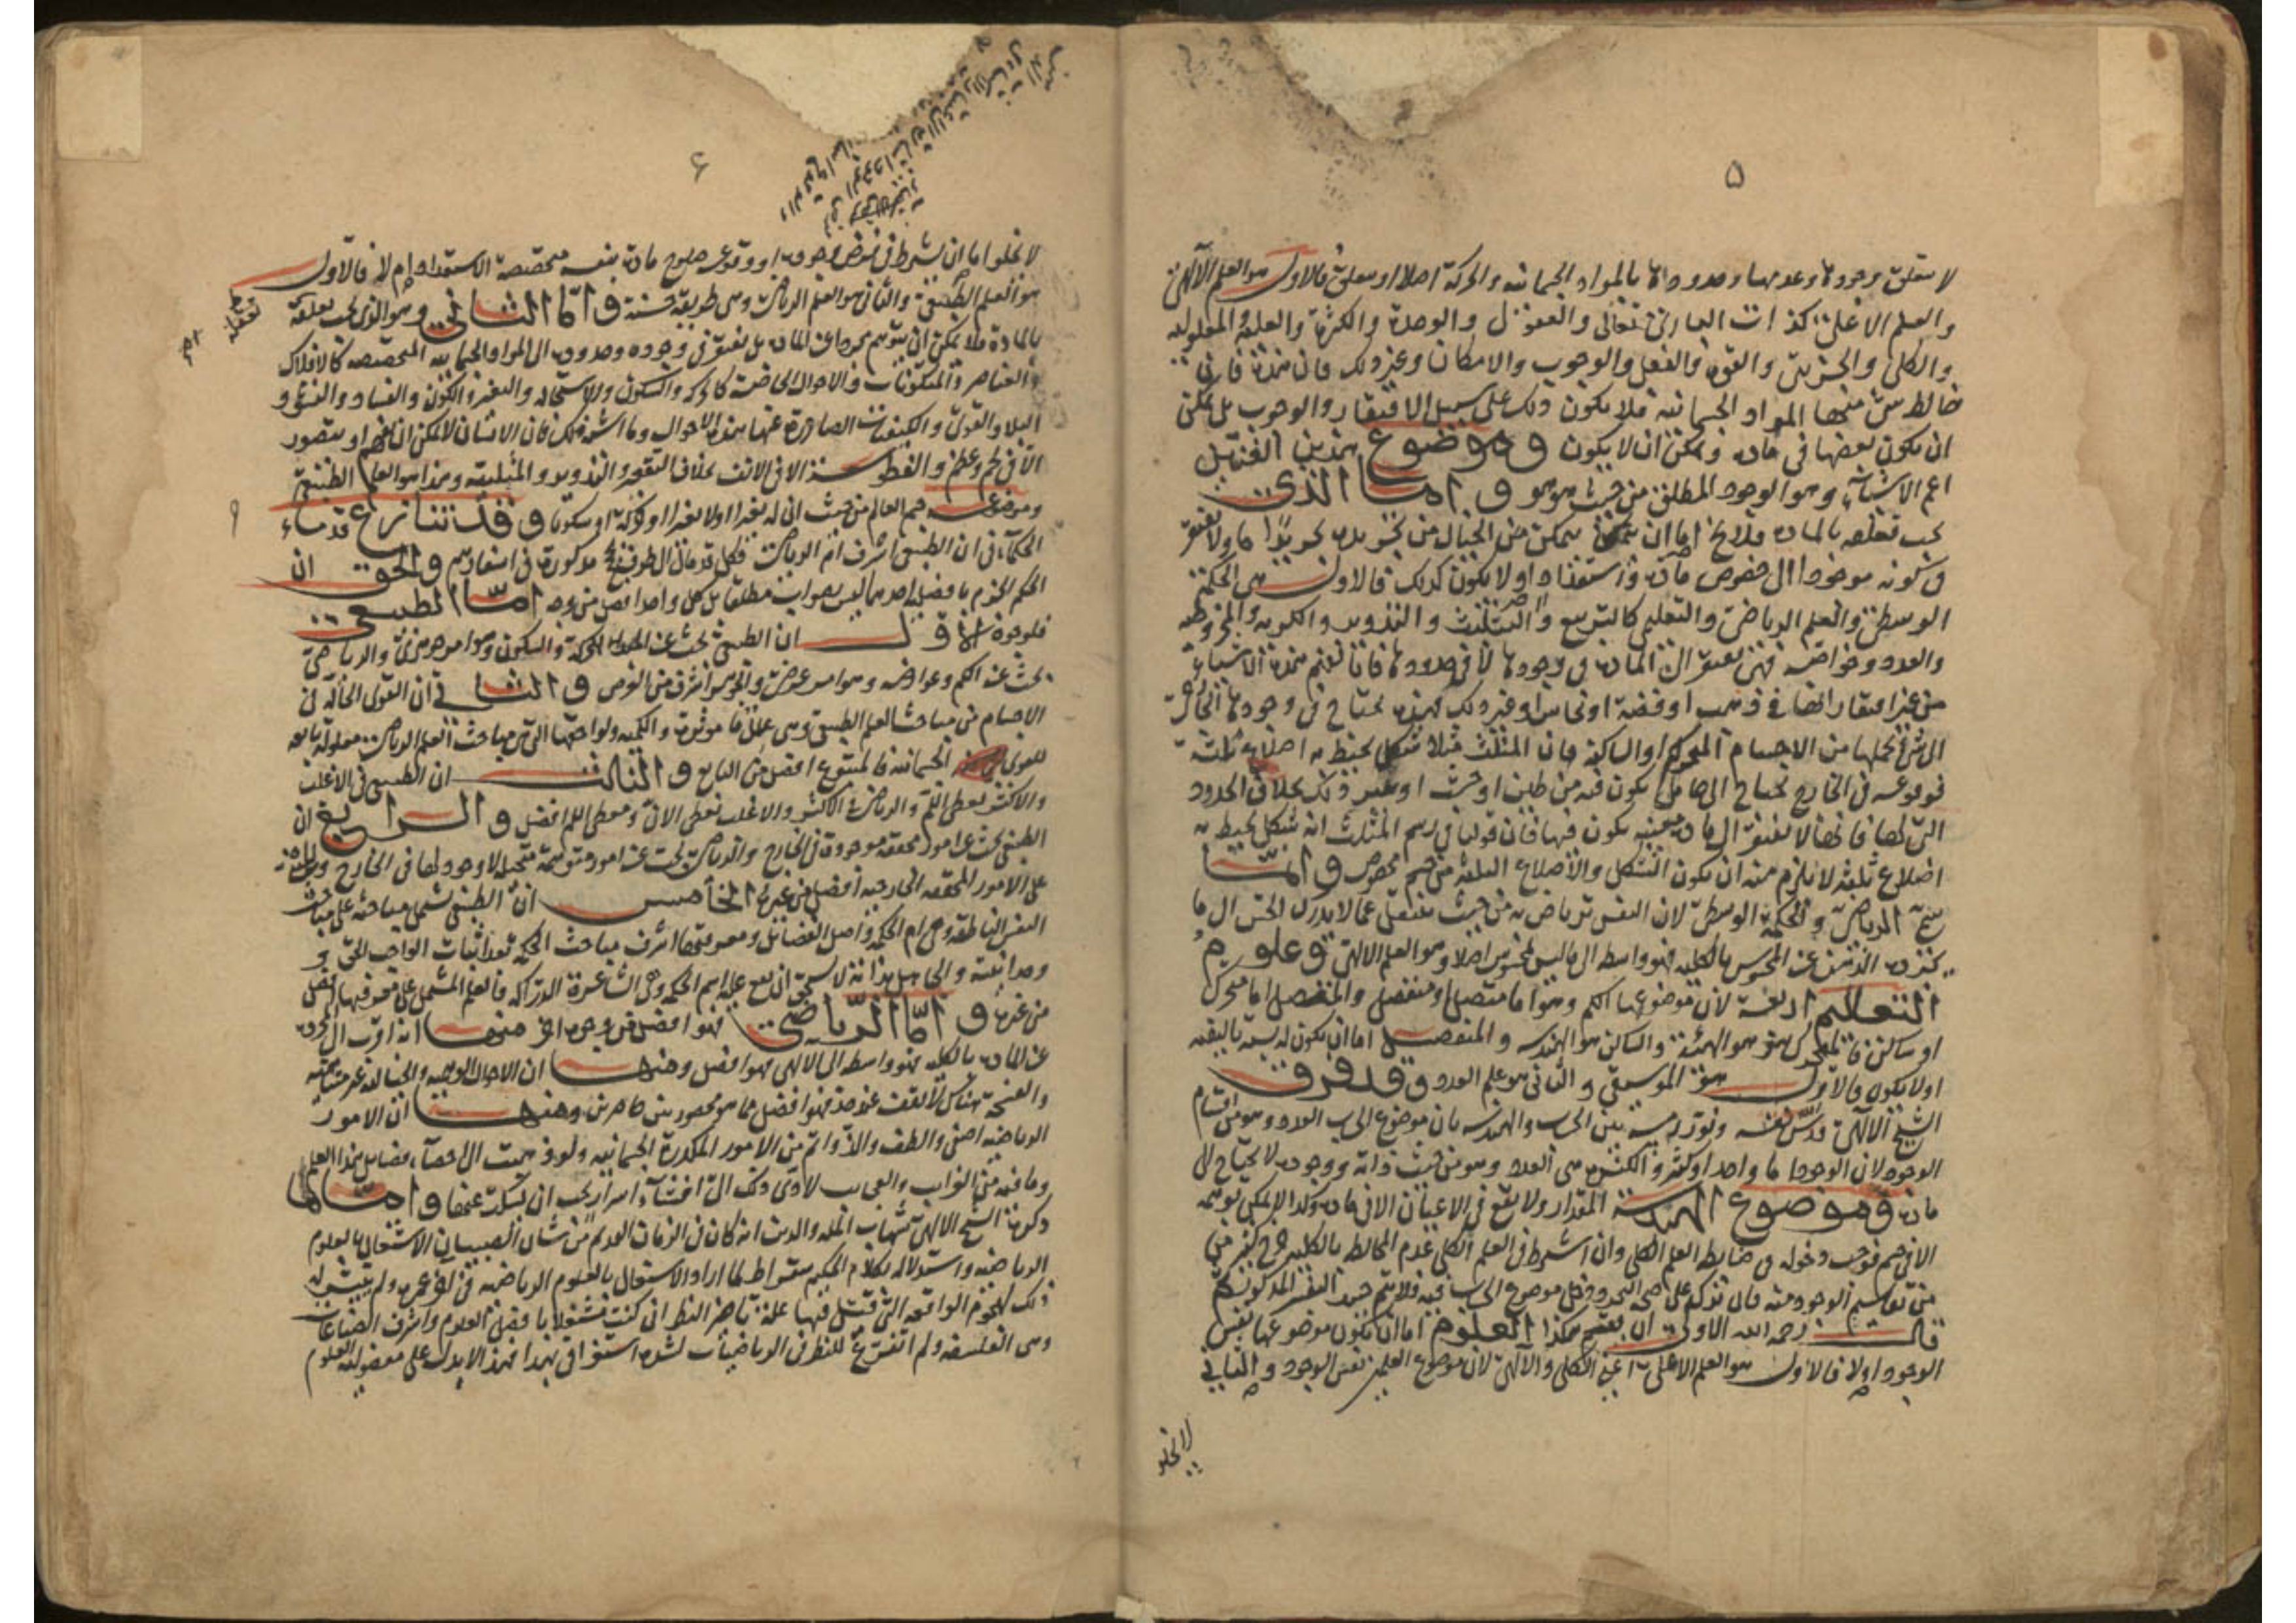 ۵
لا يتعلق وجودها وعدمها وحدودها بالمواد الجسمانية والحركة اصلا او يتعلق فالاول هو العلم الآلهى
والعلم الاعلى كذات البارئ تعالى والعقول والوحدة والكثرة والعلة والمعلولية
والكلى والجزئى والقوة والفعل والوجوب والامكان وغير ذلك فان هذه فان
خالط شئ منها المواد الجسمانية فلا يكون ذلك على سبيل الافتقار والوجوب بل يمكن
ان يكون بعضها فى مادة ويمكن ان لا يكون وموضوع هذين الفنين
اعم الاشياء وهو الوجود المطلق من حيث هو هو واما الذى
يجب تعلقه بالمادة فلا يخ اما ان يتمكن الخيال من تجريده تجريدا ما ولا يفتقر
فى كونه موجودا الى خصوص مادة واستعداد او لا يكون كذلك فالاول هى الحكمة
الوسطى والعلم الرياضى والتعليمى كالتربيع والتثليث والتدوير والكرية والمخروطية
والعدد وخواصه فهى تفتقر الى المادة فى وجودها لا فى حدودها فانا نفهم هذه الاشياء
من غير افتقار الى ذهب او فضة او نحاس او غير ذلك فهذه تحتاج فى وجودها الخارجى
الى شئ يحملها من الاجسام المتحركة او الساكنة فان المثلث مثلا شكل يحيط به اضلاع ثلثة
فوقوعه فى الخارج يحتاج الى حامل يكون فيه من طين او خشب او غير ذلك بخلاف الحدود
التى لها فانها لا تفتقر الى مادة معينة يكون فيها فان قولنا فى رسم المثلث انه شكل يحيط به
اضلاع ثلثة لا يلزم منه ان يكون الشكل والاضلاع الثلثة من جسم مخصوص وانما
سمى الرياضى والحكمة الوسطى لان النفس ترتاض به من حيث ينتقل عما لا يدرك الحس الى ما
يجرده الذهن عن المحسوس بالكلية فهو واسطة الى ما ليس بمحسوس اصلا وهو العلم الالهى وعلوم
التعاليم اربعة لان موضوعها الكم وهو اما متصل او منفصل والمتصل اما متحرك
او ساكن فالمتحرك هو الهيئة والساكن هو الهندسة والمنفصل اما ان يكون له نسبة تاليفية
او لا يكون فالاول هو الموسيقى والثانى هو علم العدد وقد فرق
الشيخ الالهى قدس نفسه ونور رمسه بين الحساب والهندسة بان موضوع الحساب العدد وهو من اقسام
الوجود لان الوجود اما واحد او كثير والكثير هى العدد وهو من حيث ذاته ووجوده لا يحتاج الى
مادة وموضوع الهندسة المقدار ولا يقع فى الاعيان الا فى مادة وكذا لا يمكن توهمه
الا فى جسم فوجب دخوله فى ضابط العلم الكلى وان اشترط فى العلم الكلى عدم المخالطة بالكلية خرج كثير من
من تقاسيم الوجود منه فان تذكر على صحة التجرد دخل موضوع الحساب فيه فلا يتم حينئذ التقسيم المذكور لكم
قال رحمه الله الاولى ان يقسم هكذا العلوم اما ان يكون موضوعها نفس
الوجود او لا فالاول هو العلم الاعلى اعنى الكلى والالهى لان موضوع العلمين نفس الوجود والثانى
لا يخلو
۶
لا يخلو اما ان يشترط فى فرض وجوده او وقوعه صلوح مادة بنفسه متخصصة الاستعداد ام لا فالاول
هو العلم الطبيعى والثانى هو العلم الرياضى وهى طريقة حسنة واما الثانى وهو الذى يجب تعلقه
بالمادة فلا يمكن ان يتوهم مجردا عن المادة بل يفتقر فى وجوده وحدوده الى المواد الجسمانية المتخصصة كالافلاك
والعناصر والمتكونات والاحوال الخاصة كالحركة والسكون والاستحالة والتغير والكون والفساد والنشو و
البلا والقوى والكيفيات الصادرة عنها هذه الاحوال وما اشبه ذلك فان الانسان لا يمكن ان يفهم او يتصور
الا فى لحم وعظم والفطوسة الا فى الانف بخلاف التقعير والتدوير والمثلثية وهذا هو العلم الطبيعى
وموضوعه جسم العالم من حيث ان له تغيرا او لا تغيرا او حركة او سكونا وقد تنازع قدماء
الحكماء فى ان الطبيعى اشرف ام الرياضى فكل قد مال الى طرف بحجج مذكورة فى اسفارهم والحق ان
الحكم الجزم بافضلية احدهما ليس بصواب مطلقا بل كل واحد افضل من وجه اما الطبيعى
فلوجوه الاول ان الطبيعى يبحث عن الجسم والحركة والسكون وهو امر جوهرى والرياضى
يبحث عن الكم وعوارضه وهو امر عرضى والجوهر اشرف من العرض والثانى ان القوى الحالة فى
الاجسام من مباحث العلم الطبيعى وهى علل فاعلة مؤثرة والكمية ولواحقها التى من مباحث العلم الرياضى معلولة تابعة
للقوى الجسمانية فالمتبوع افضل من التابع والثالث ان الطبيعى فى الاغلب
والاكثر يعطى اللم والرياضى فى الاكثر والاغلب يعطى الان ومعطى اللم افضل والرابع ان
الطبيعى يبحث عن امور محققة موجودة فى الخارج والرياضى يبحث عن امور متوهمة متخيلة لا وجود لها فى الخارج
على الامور المحققة الخارجية افضل من غيره الخامس ان الطبيعى يشتمل مباحثه على مباحث
النفس الناطقة وهى ام الحكمة واصل الفضائل ومعرفتها اشرف مباحث الحكمة بعد اثبات الواجب الحق و
وحدانيته والجاهل بذاته لا يستحق ان يقع عليه اسم الحكمة فالعلم المشتمل على معرفتها افضل
من غيره واما الرياضى فهو افضل من وجوه اخر منها انه اقرب الى المجردة
عن المادة بالكلية فهو واسطة الى الالهى فهو افضل ومنها ان الاحوال الوهمية والخيالية غير متناهية
والفسحة هناك لا تقف عند حد فهو افضل مما هو محصور بين حاصرين ومنها ان الامور
الرياضية اصفى والطف والذ واتم من الامور المكدرة الجسمانية ولو ذهبت الى احصاء فضايل هذا العلم
وما فيه من الغرايب والعجايب لادى ذلك الى افشاء اسرار يجب ان يسكت عنها واما ما
ذكره الشيخ الالهى شهاب الملة والدين انه كان فى الزمان القديم من شان الصبيان الاشتغال بالعلوم
الرياضية واستدلاله بكلام الحكيم سقراط لما اراد الاشتغال بالعلوم الرياضية فى آخر عمره ولم يتيسر له
ذلك لهجوم الواقعة التى قتل فيها علمه تاخير النظر انى كنت مشتغلا بافضل العلوم واشرف الصناعات
وهى الفلسفة ولم اتفرغ للنظر فى الرياضيات لشدة استغراقى بهذا فهذا لا يدل على مفضولية العلوم